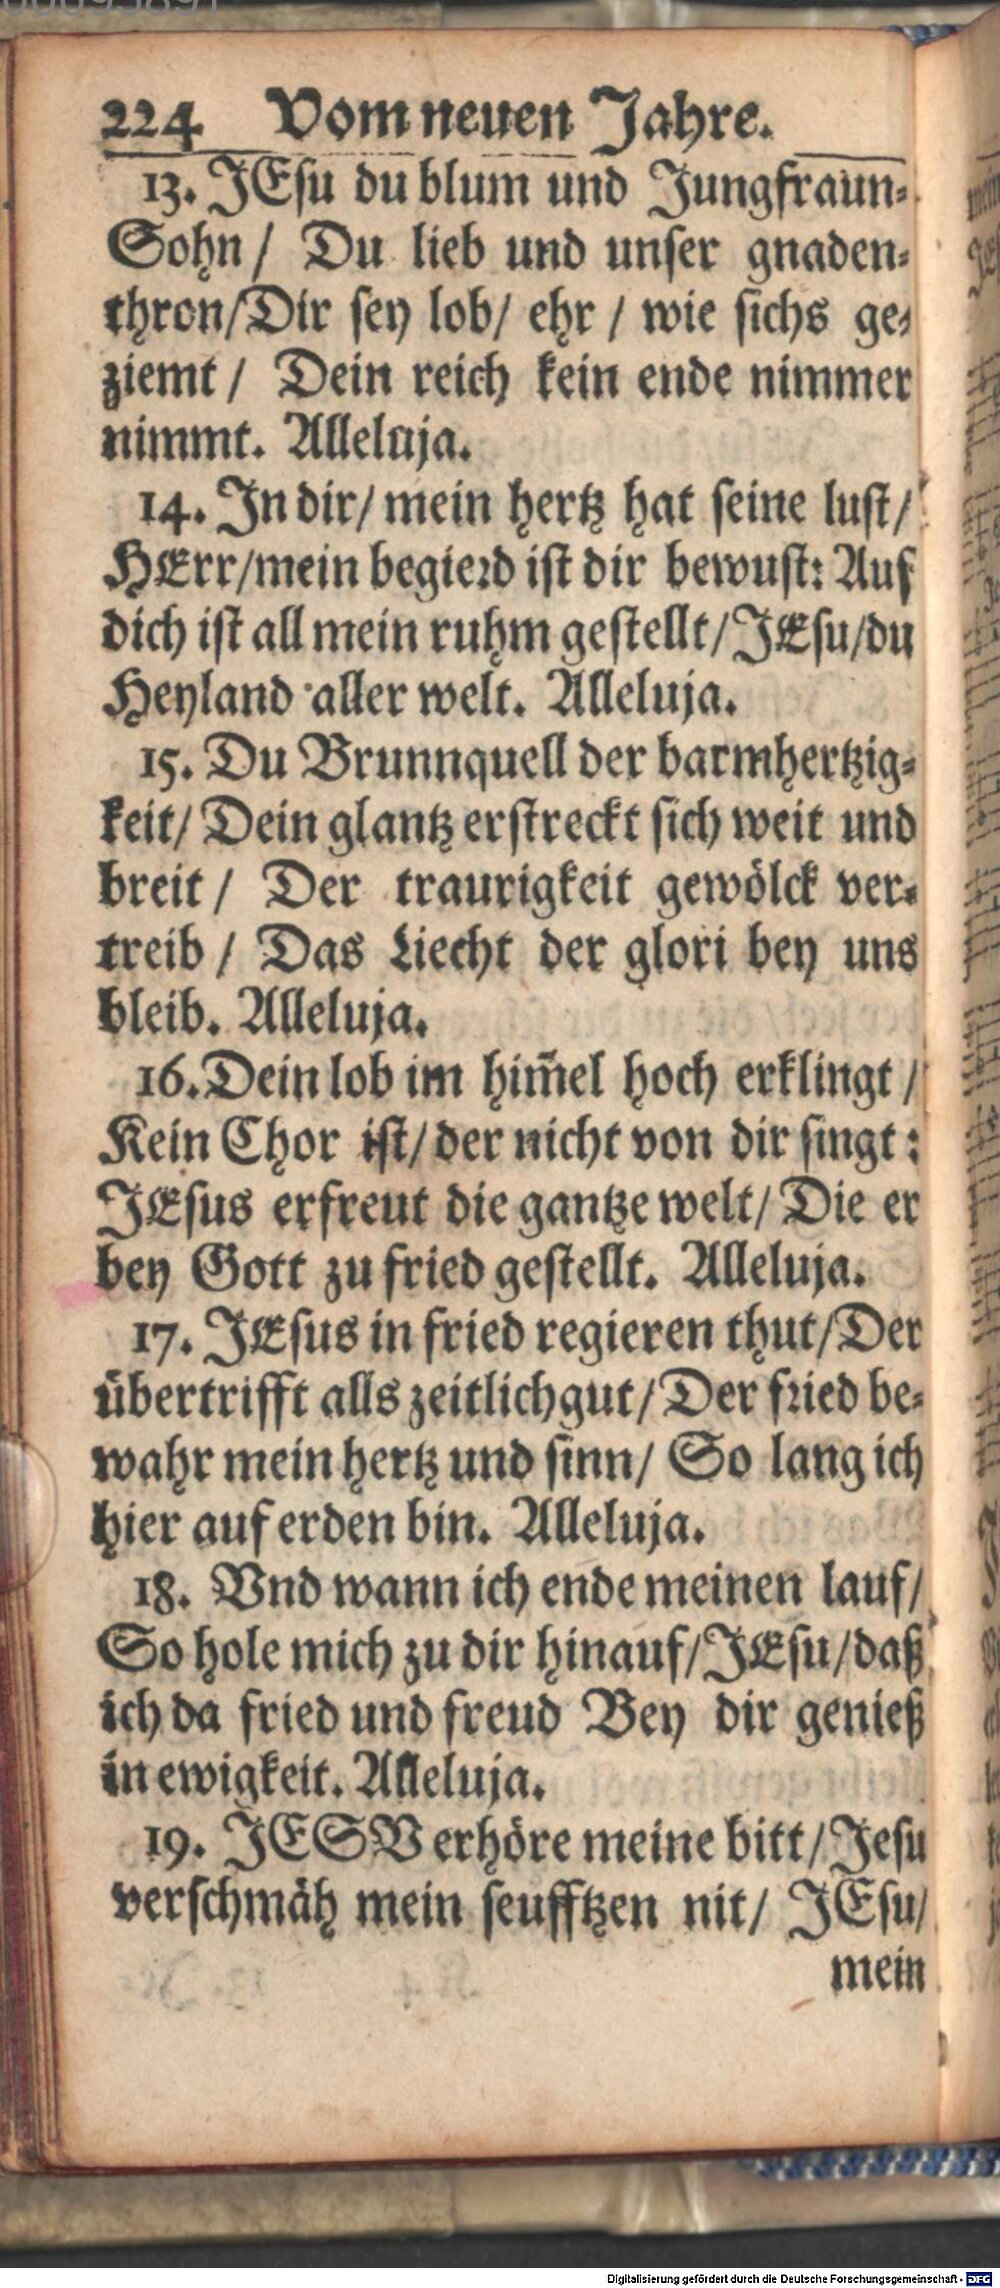 224 Vom neuen Jahre.
13. JEsu du blum und Jungfraun-
Sohn / Du lieb und unser gnaden-
thron/Dir sey lob/ ehr / wie sichs ge-
ziemt / Dein reich kein ende nimmer
nimmt. Alleluja.
14. In dir/ mein hertz hat seine lust/
HErr/mein begierd ist dir bewust: Auf
dich ist all mein ruhm gestellt/JEsu/du
Heyland aller welt. Alleluja.
15. Du Brunnquell der barmhertzig-
keit/ Dein glantz erstreckt sich weit und
breit / Der traurigkeit gewölck ver-
treib / Das Liecht der glori bey uns
bleib. Alleluja.
16. Dein lob im him̃el hoch erklingt /
Kein Chor ist/ der nicht von dir singt:
JEsus erfreut die gantze welt/ Die er
bey Gott zu fried gestellt. Alleluja.
17. JEsus in fried regieren thut/Der
übertrifft alls zeitlich gut/ Der fried be-
wahr mein hertz und sinn/ So lang ich
hier auf erden bin. Alleluja.
18. Vnd wann ich ende meinen lauf/
So hole mich zu dir hinauf/JEsu/daß
ich da fried und freud Bey dir genieß
in ewigkeit. Alleluja.
19. JESV erhöre meine bitt/Jesu
verschmäh mein seufftzen nit/ JEsu/
mein
Digitalisierung gefördert durch die Deutsche Forschungsgemeinschaft - DFG